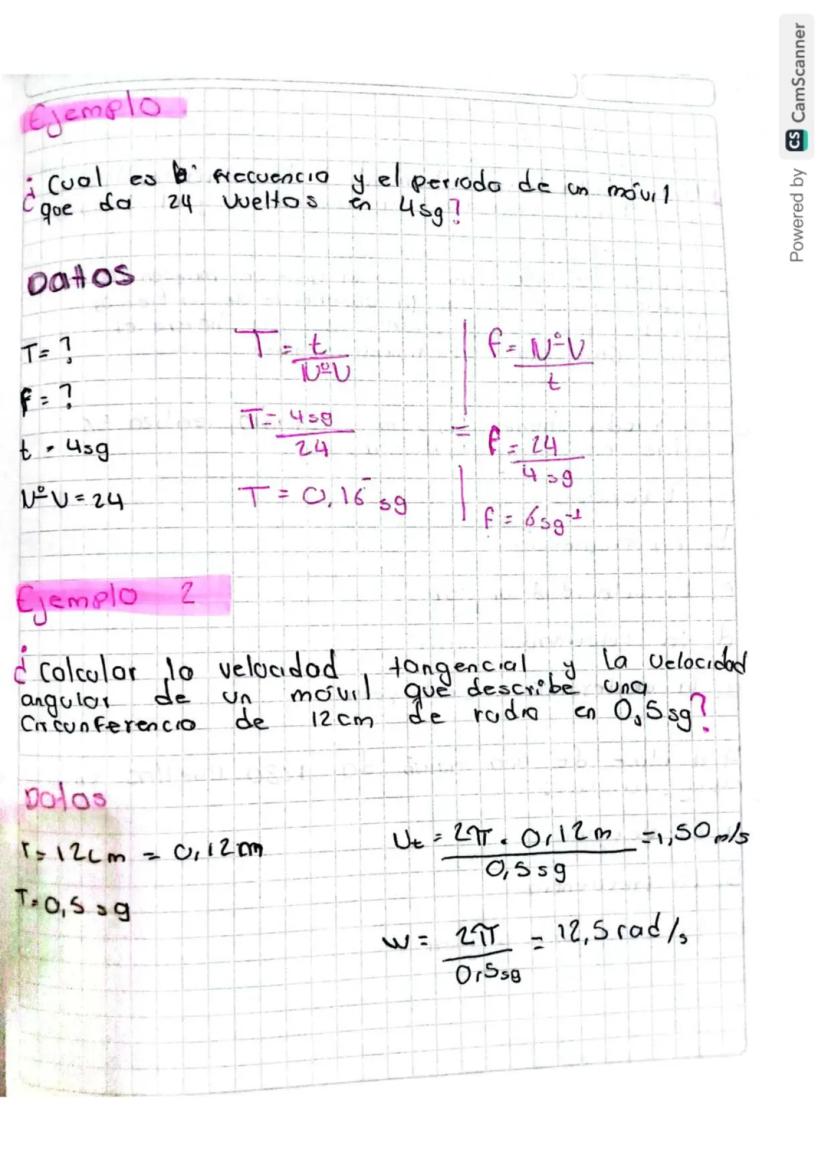 Ejemplo
¿Cual es la frecuencia y el periodo de un móvil
que da 24 vueltas en 4sg?
Datos
T= ?
f = ?
t = 4sg
NºV = 24
T = t / NºV
T = 4sg / 24
T = 0,16 sg
f = NºV / t
= f = 24 / 4sg
f = 6sg⁻¹
Ejemplo 2
¿Calcular la velocidad tangencial y la velocidad
angular de un móvil que describe una
Circunferencia de 12cm de radio en 0,5sg?
Datos
r = 12cm = 0,12m
T = 0,5sg
Vt = 2π . 0,12m / 0,5sg = 1,50 m/s
w = 2π / 0,5sg = 12,5 rad/s
Powered by CS CamScanner